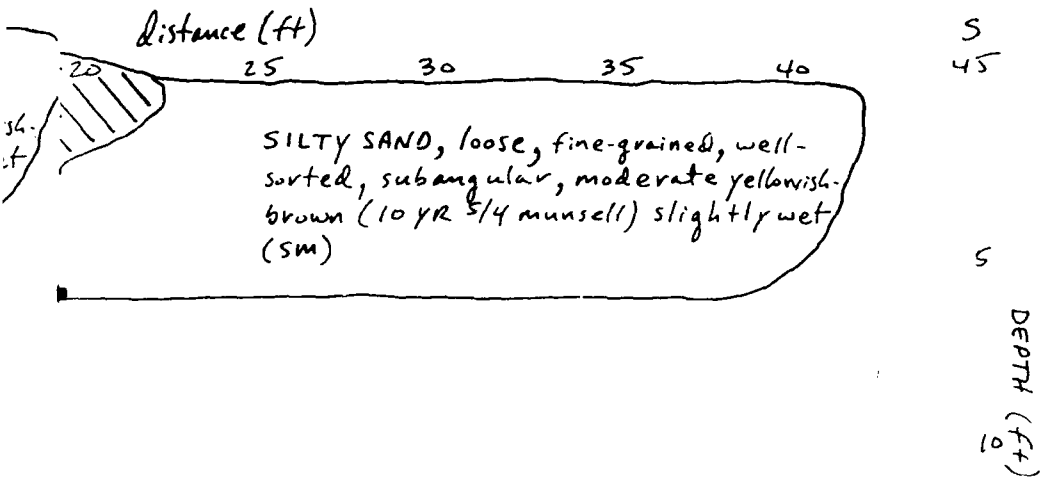 distance (ft)
S
20 25 30 35 40 45
SILTY SAND, loose, fine-grained, well-
sorted, subangular, moderate yellowish-
brown (10 YR 5/4 munsell) slightly wet
(SM)
5
DEPTH (ft)
10